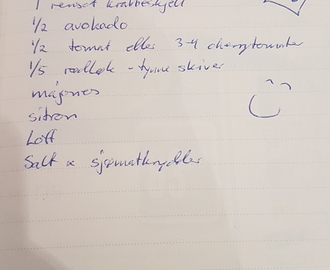 1 renset krabbeskjell
1/2 avokado
1/2 tomat eller 3-4 cherrytomater
1/5 rødløk - tynne skiver
majones
sitron
Loff
Salt & sjømatkrydder